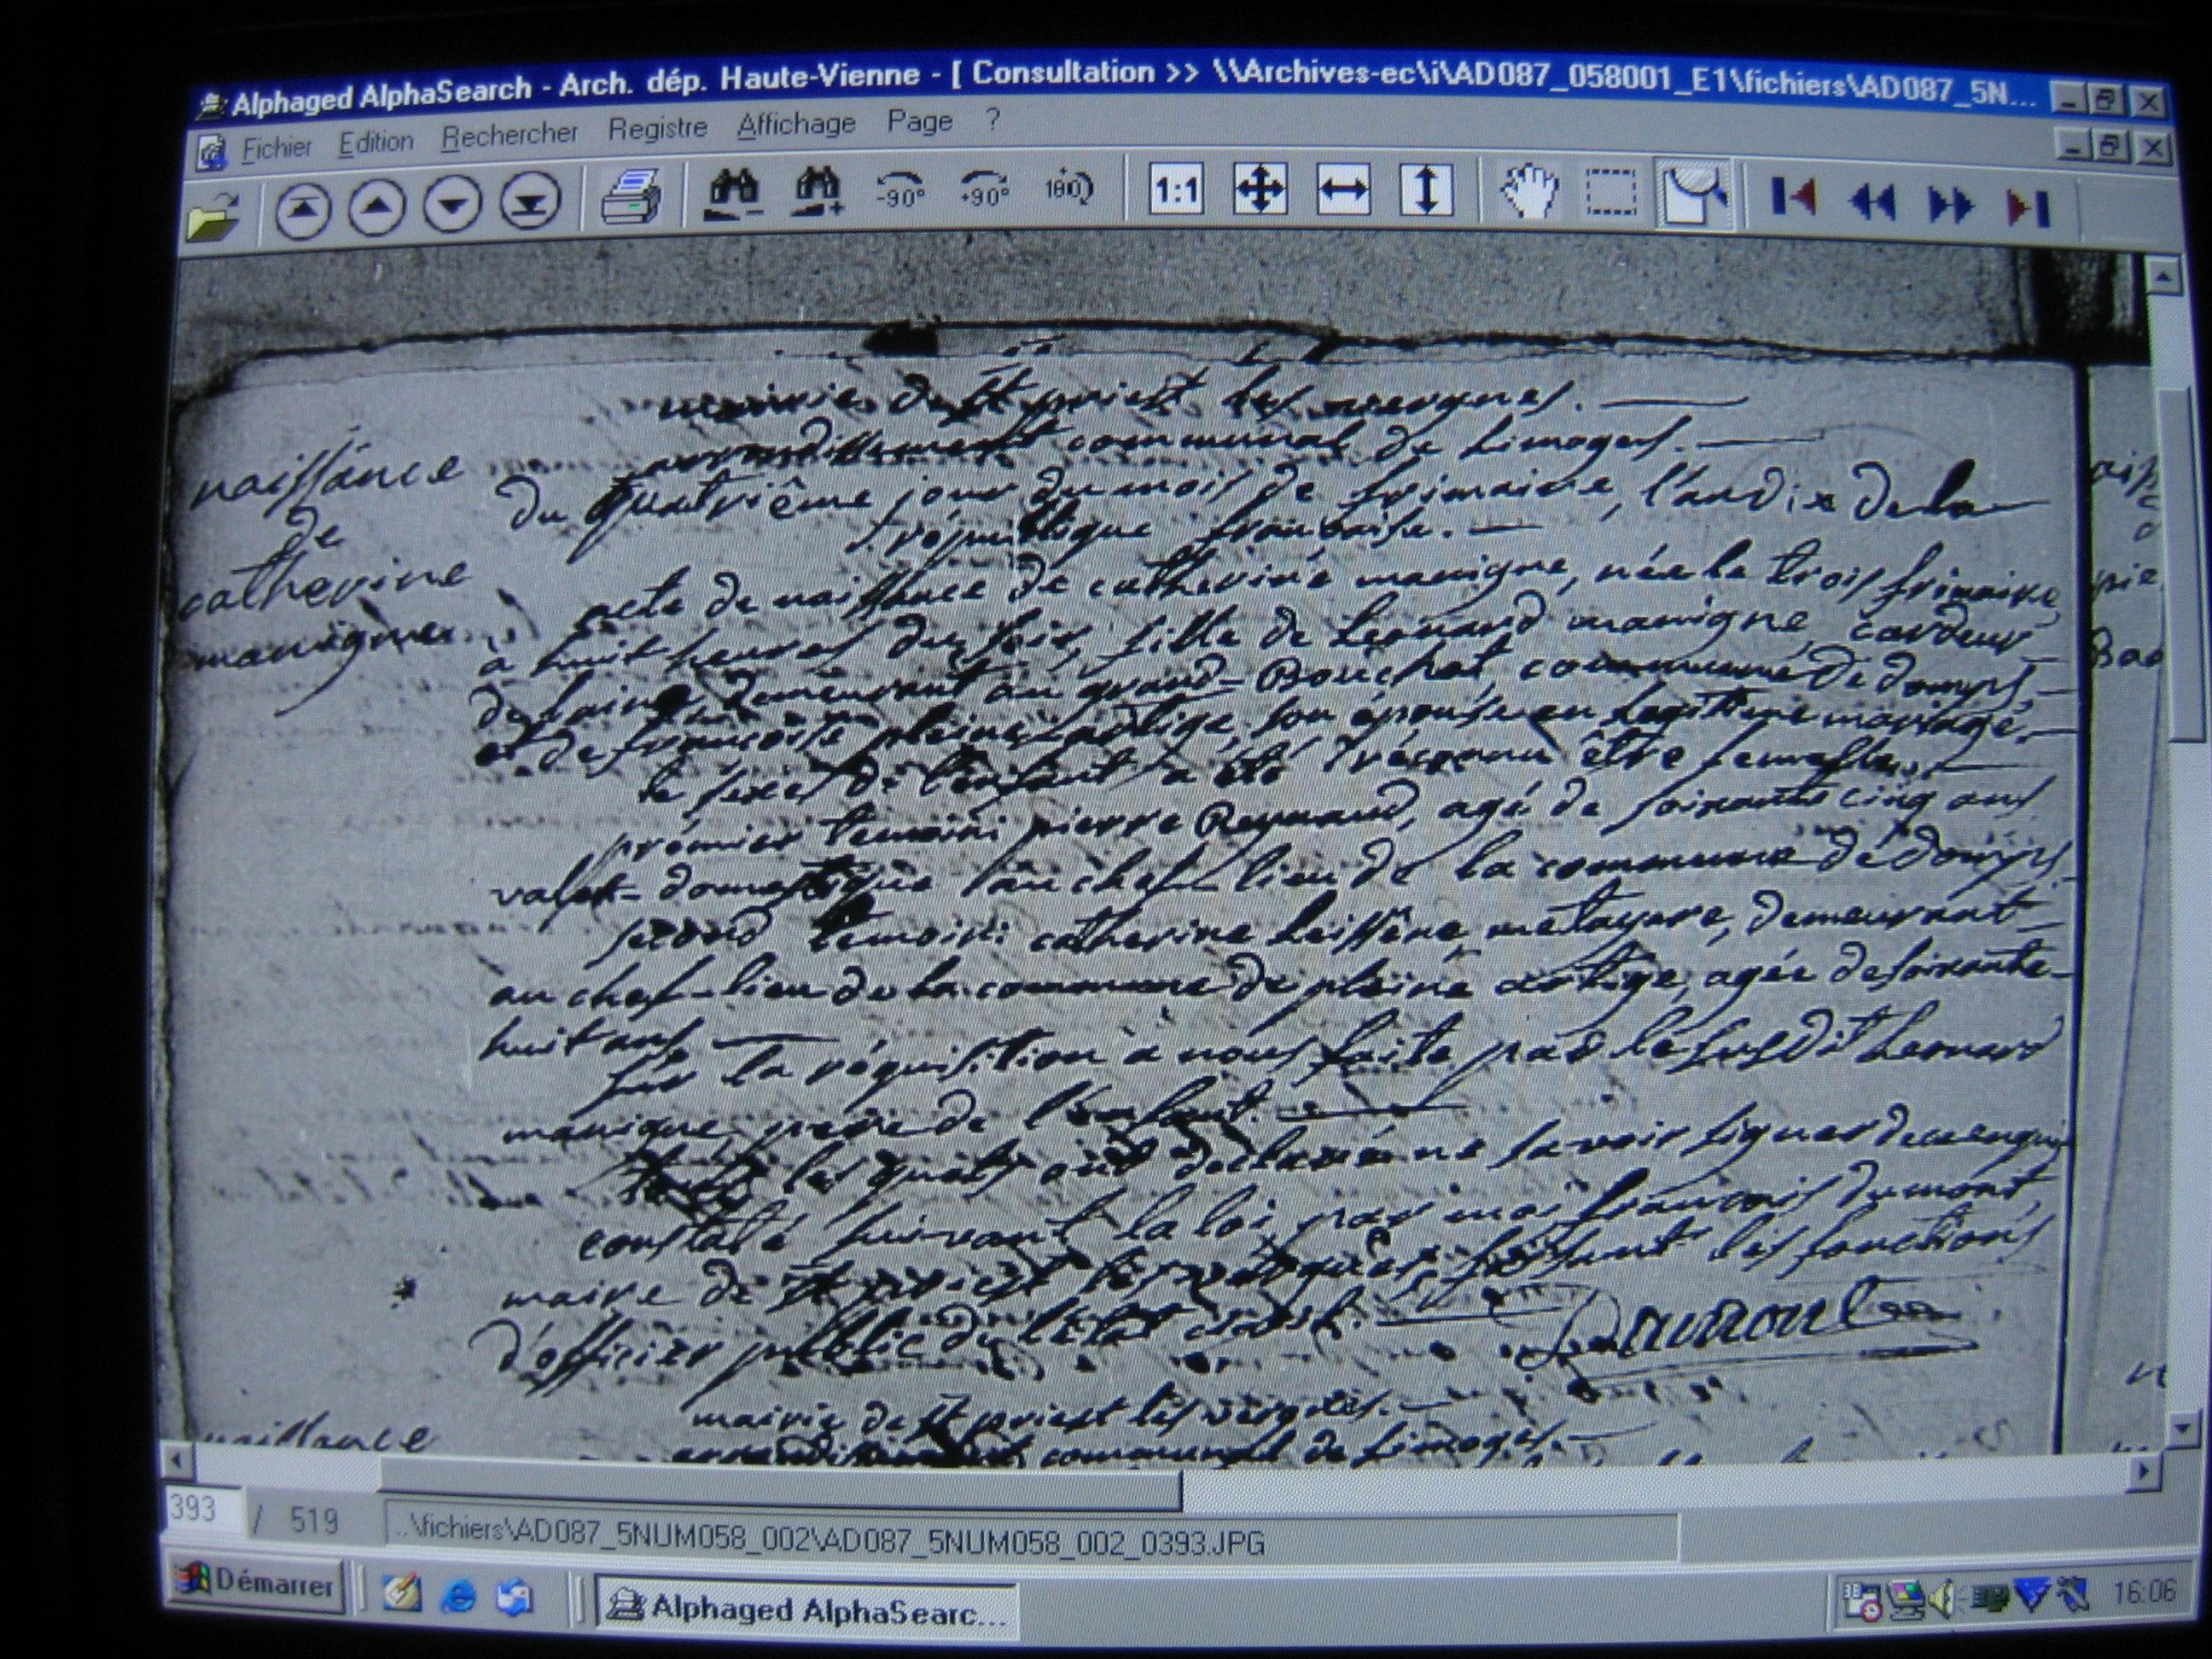 Alphaged AlphaSearch - Arch. dép. Haute-Vienne - [ Consultation >> \\Archives-ec\i\AD087_058001_E1\fichiers\AD087_5N...
Fichier Edition Rechercher Registre Affichage Page ?
-90° +90° 180 1:1
mairie de St priest les vergnes.
arrondissement communal de Limoges.
naissance
de
catherine
manigne
du quatrième jour du mois de frimaire, l'an dix de la
république francaise.
acte de naissance de catherine manigne, née le trois frimaire
à huit heures du soir, fille de Leonard manigne, cardeur
de laine demeurant au grand-Bouchet, commune de domps,
et de francoise pleinartige, son épouse en legitime mariage,
le sexe de l'enfant a été reconnu être femelle.
prémier temoin: pierre Reynaud, agé de soixante cinq ans
valet-domestique au chef-lieu de la commune de domps.
second temoin: catherine metayere, demeurant
au chef-lieu de la commune de pleine artige, agée de soixante-
huit ans
sur la réquisition à nous faite par le susdit Leonard
manigne, père de l'enfant.
lesquels ont declaré ne savoir signer de ce enquis
constaté suivant la loi, par moi francois dumont,
maire de St priest les vergnes, faisant les fonctions
d'officier public de l'état civil.
Dumont
mairie de St priest les vergnes.
arrondissement communal de Limoges.
naissance
393 / 519
..\fichiers\AD087_5NUM058_002\AD087_5NUM058_002_0393.JPG
Démarrer
Alphaged AlphaSearc...
16:06